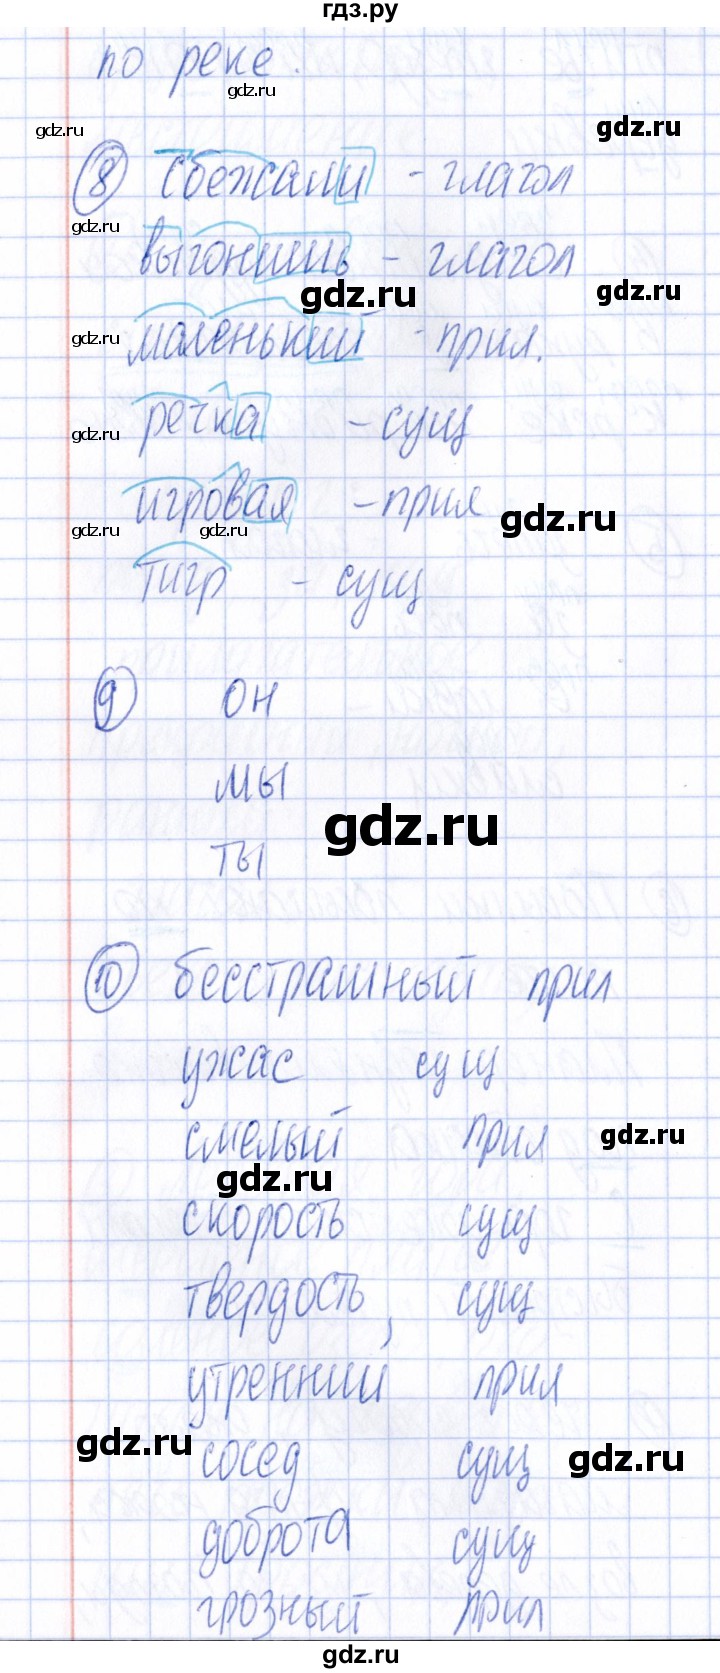 гдз.ру
по реке.
gdz.ru
gdz.ru
gdz.ru
8 сбежали - глагол
gdz.ru
выгонишь - глагол
gdz.ru
gdz.ru
gdz.ru
маленький - прил.
речка - сущ
gdz.ru
игровая - прил
gdz.ru
gdz.ru
gdz.ru
тигр - сущ
9 он
мы
gdz.ru
ты
10 бесстрашный прил
ужас сущ
смелый прил
gdz.ru
gdz.ru
скорость сущ
твердость, сущ
утренний прил
gdz.ru
сосед сущ
gdz.ru
доброта сущ
грозный прил
gdz.ru